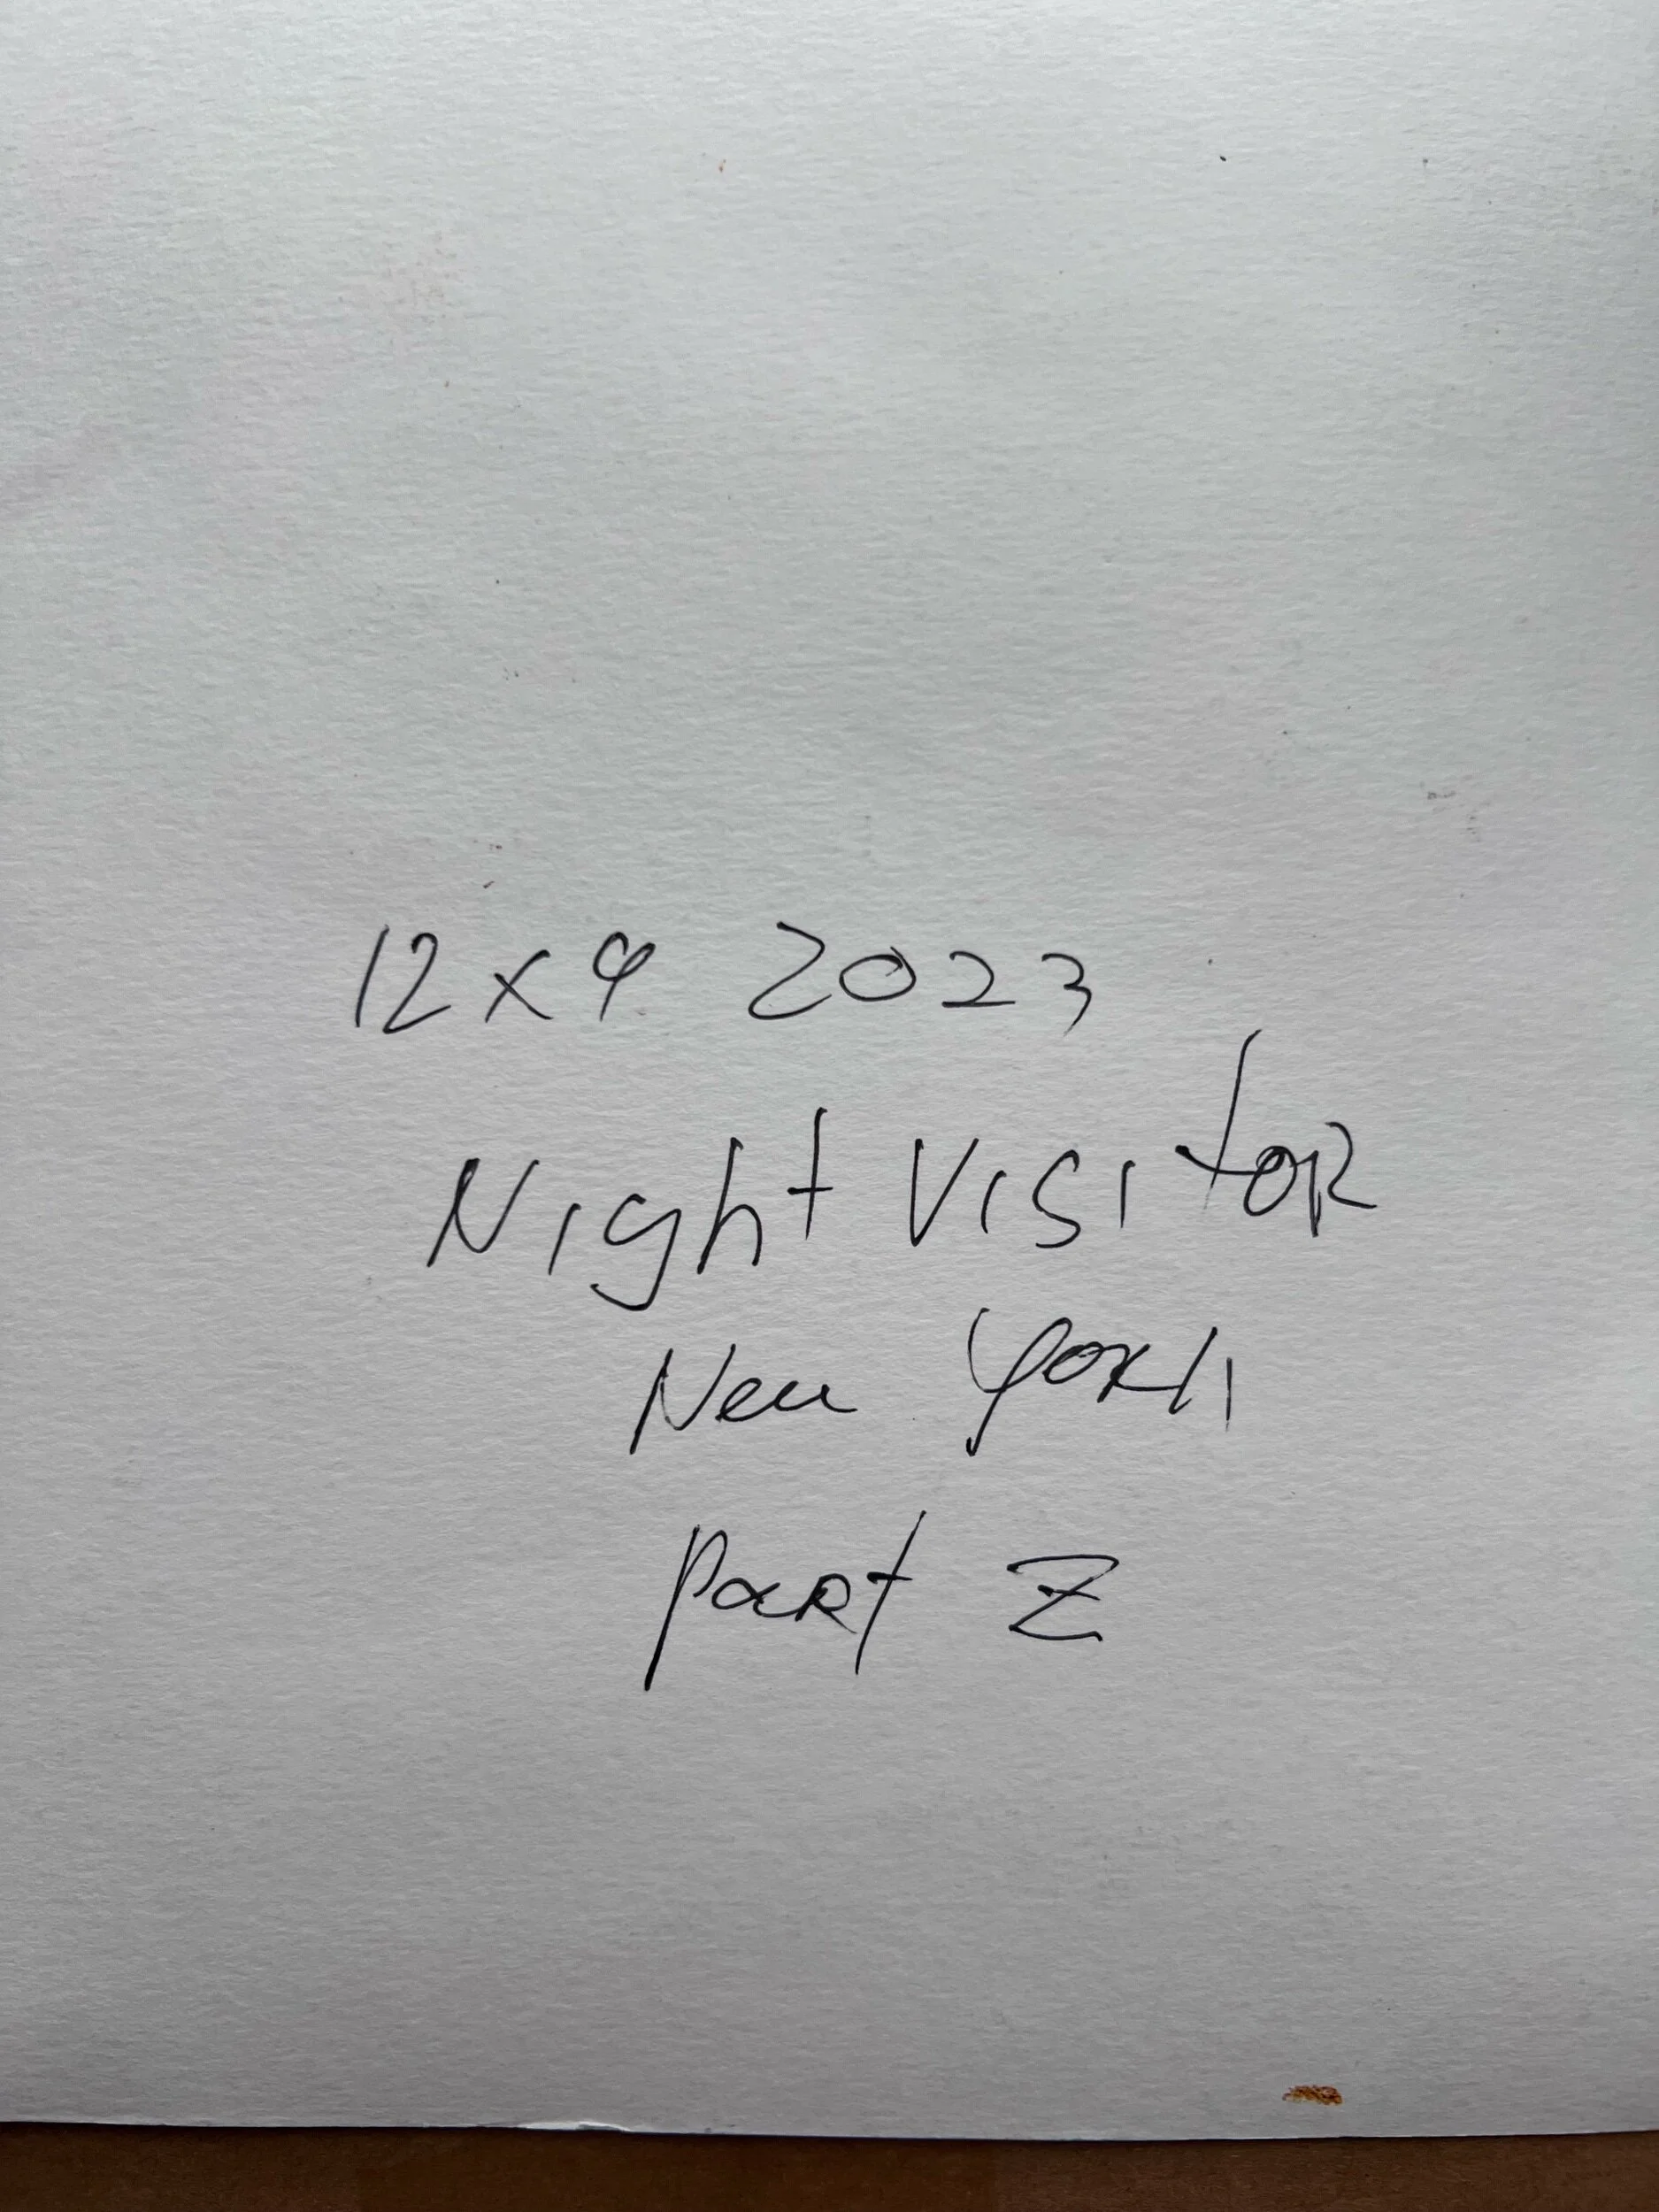 12x9 2023
Night VisitoR
New York
paRt Z